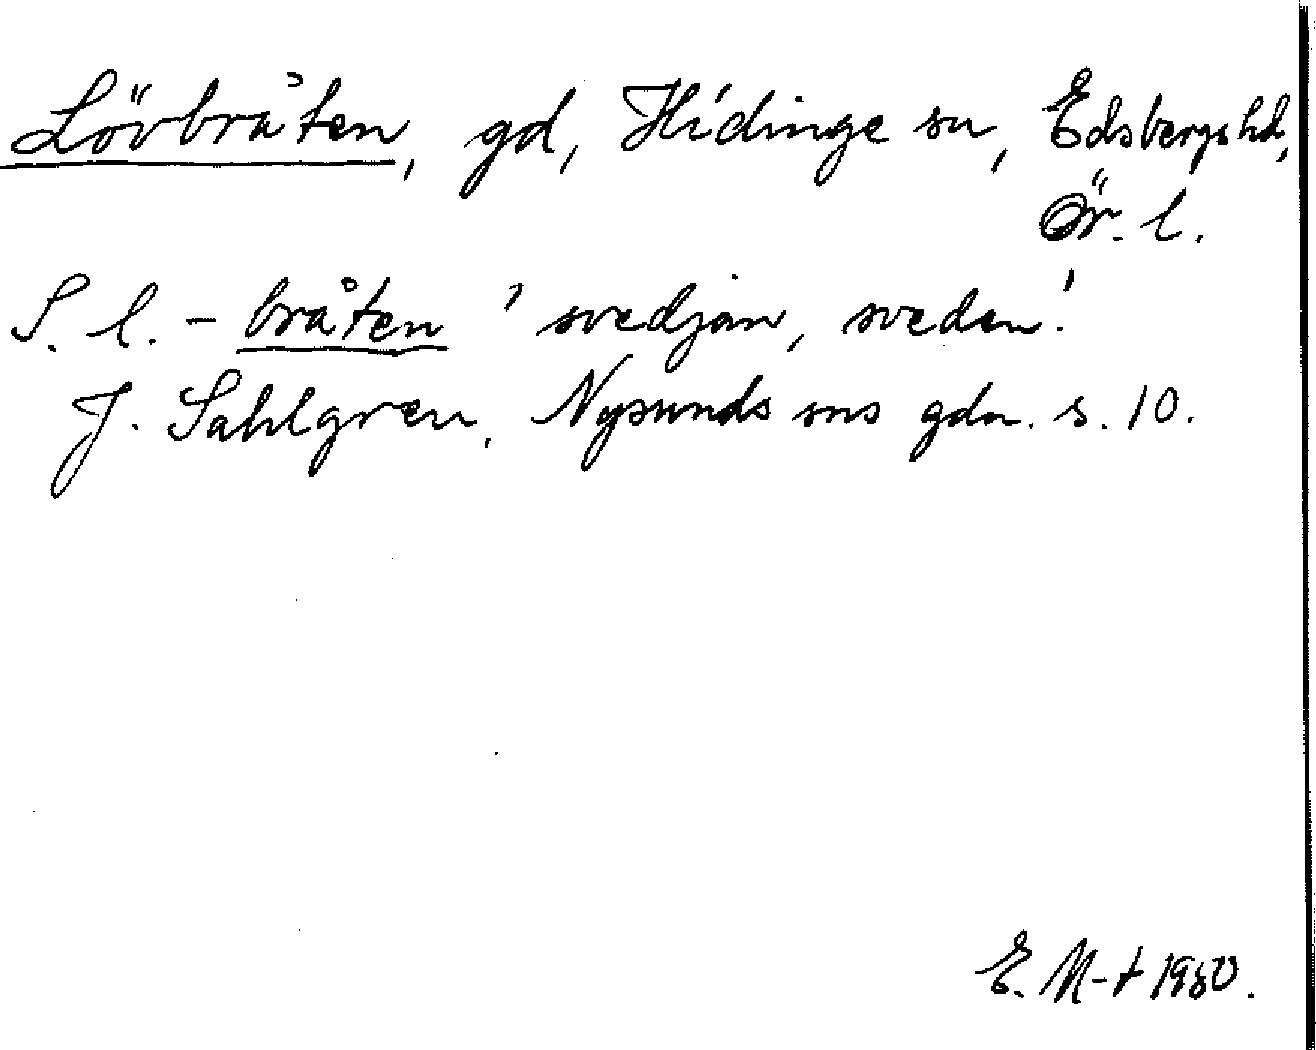 Lövbråten, gd, Hidinge sn, Edsbergs hd,
Ör. l.
S. l. - bråten 'svedjan, sveden'.
J. Sahlgren, Nysunds sns gdn. s. 10.
E. M-t 1980.